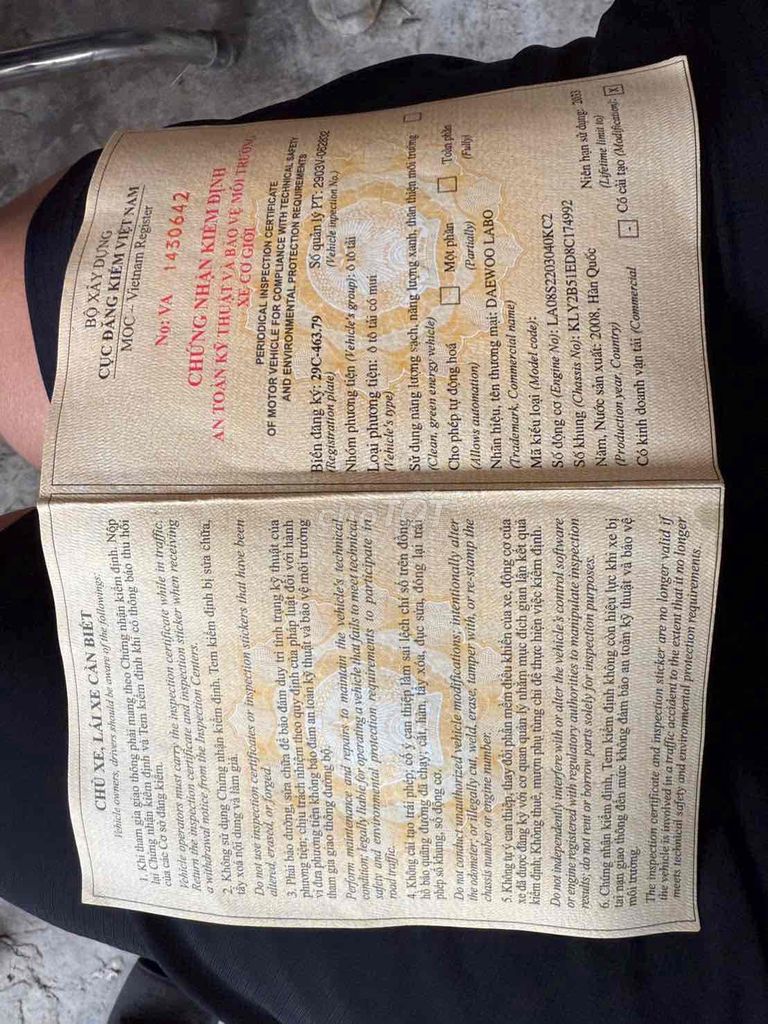 CHỦ XE, LÁI XE CẦN BIẾT
Vehicle owners, drivers should be aware of the followings:
1. Khi tham gia giao thông phải mang theo Chứng nhận kiểm định. Nộp
lại Chứng nhận kiểm định và Tem kiểm định khi có thông báo thu hồi
của các Cơ sở đăng kiểm.
Vehicle operators must carry the inspection certificate while in traffic.
Return the inspection certificate and inspection sticker when receiving
a withdrawal notice from the Inspection Centers.
2. Không sử dụng Chứng nhận kiểm định, Tem kiểm định bị sửa chữa,
tẩy xoá nội dung và làm giả.
Do not use inspection certificates or inspection stickers that have been
altered, erased, or forged.
3. Phải bảo dưỡng, sửa chữa để bảo đảm duy trì tình trạng kỹ thuật của
phương tiện; chịu trách nhiệm theo quy định của pháp luật đối với hành
vi đưa phương tiện không bảo đảm an toàn kỹ thuật và bảo vệ môi trường
tham gia giao thông đường bộ.
Perform maintenance and repairs to maintain the vehicle's technical
condition; legally liable for operating a vehicle that fails to meet technical
safety and environmental protection requirements to participate in
road traffic.
4. Không cải tạo trái phép; cố ý can thiệp làm sai lệch chỉ số trên đồng
hồ báo quãng đường đã chạy; cắt, hàn, tẩy xóa, đục sửa, đóng lại trái
phép số khung, số động cơ.
Do not conduct unauthorized vehicle modifications; intentionally alter
the odometer; or illegally cut, weld, erase, tamper with, or re-stamp the
chassis number or engine number.
5. Không tự ý can thiệp, thay đổi phần mềm điều khiển của xe, động cơ của
xe đã được đăng ký với cơ quan quản lý nhằm mục đích gian lận kết quả
kiểm định; Không thuê, mượn phụ tùng chỉ để thực hiện việc kiểm định.
Do not independently interfere with or alter the vehicle's control software
or engine registered with regulatory authorities to manipulate inspection
results; do not rent or borrow parts solely for inspection purposes.
6. Chứng nhận kiểm định, Tem kiểm định không còn hiệu lực khi xe bị
tai nạn giao thông đến mức không đảm bảo an toàn kỹ thuật và bảo vệ
môi trường.
The inspection certificate and inspection sticker are no longer valid if
the vehicle is involved in a traffic accident to the extent that it no longer
meets technical safety and environmental protection requirements.
BỘ XÂY DỰNG
CỤC ĐĂNG KIỂM VIỆT NAM
MOC - Vietnam Register
No: VA 1430642
CHỨNG NHẬN KIỂM ĐỊNH
AN TOÀN KỸ THUẬT VÀ BẢO VỆ MÔI TRƯỜNG
XE CƠ GIỚI
PERIODICAL INSPECTION CERTIFICATE
OF MOTOR VEHICLE FOR COMPLIANCE WITH TECHNICAL SAFETY
AND ENVIRONMENTAL PROTECTION REQUIREMENTS
Biển đăng ký: 29C-463.79 Số quản lý PT: 2903V-062832
(Registration plate) (Vehicle inpection No.)
Nhóm phương tiện (Vehicle's group): ô tô tải
Loại phương tiện: ô tô tải có mui
(Vehicle's type)
Sử dụng năng lượng sạch, năng lượng xanh, thân thiện môi trường
(Clean, green energy vehicle)
Cho phép tự động hoá Một phần Toàn phần
(Allows automation) (Partially) (Fully)
Nhãn hiệu, tên thương mại: DAEWOO LABO
(Trademark, Commercial name)
Mã kiểu loại (Model code):
Số động cơ (Engine No): LA08S2203040KC2
Số khung (Chassis No): KLY2B51ED8C174992
Năm, Nước sản xuất: 2008, Hàn Quốc Niên hạn sử dụng: 2033
(Production year, Country) (Lifetime limit to)
Có kinh doanh vận tải (Commercial - Có cải tạo (Modification): X
choTỐT